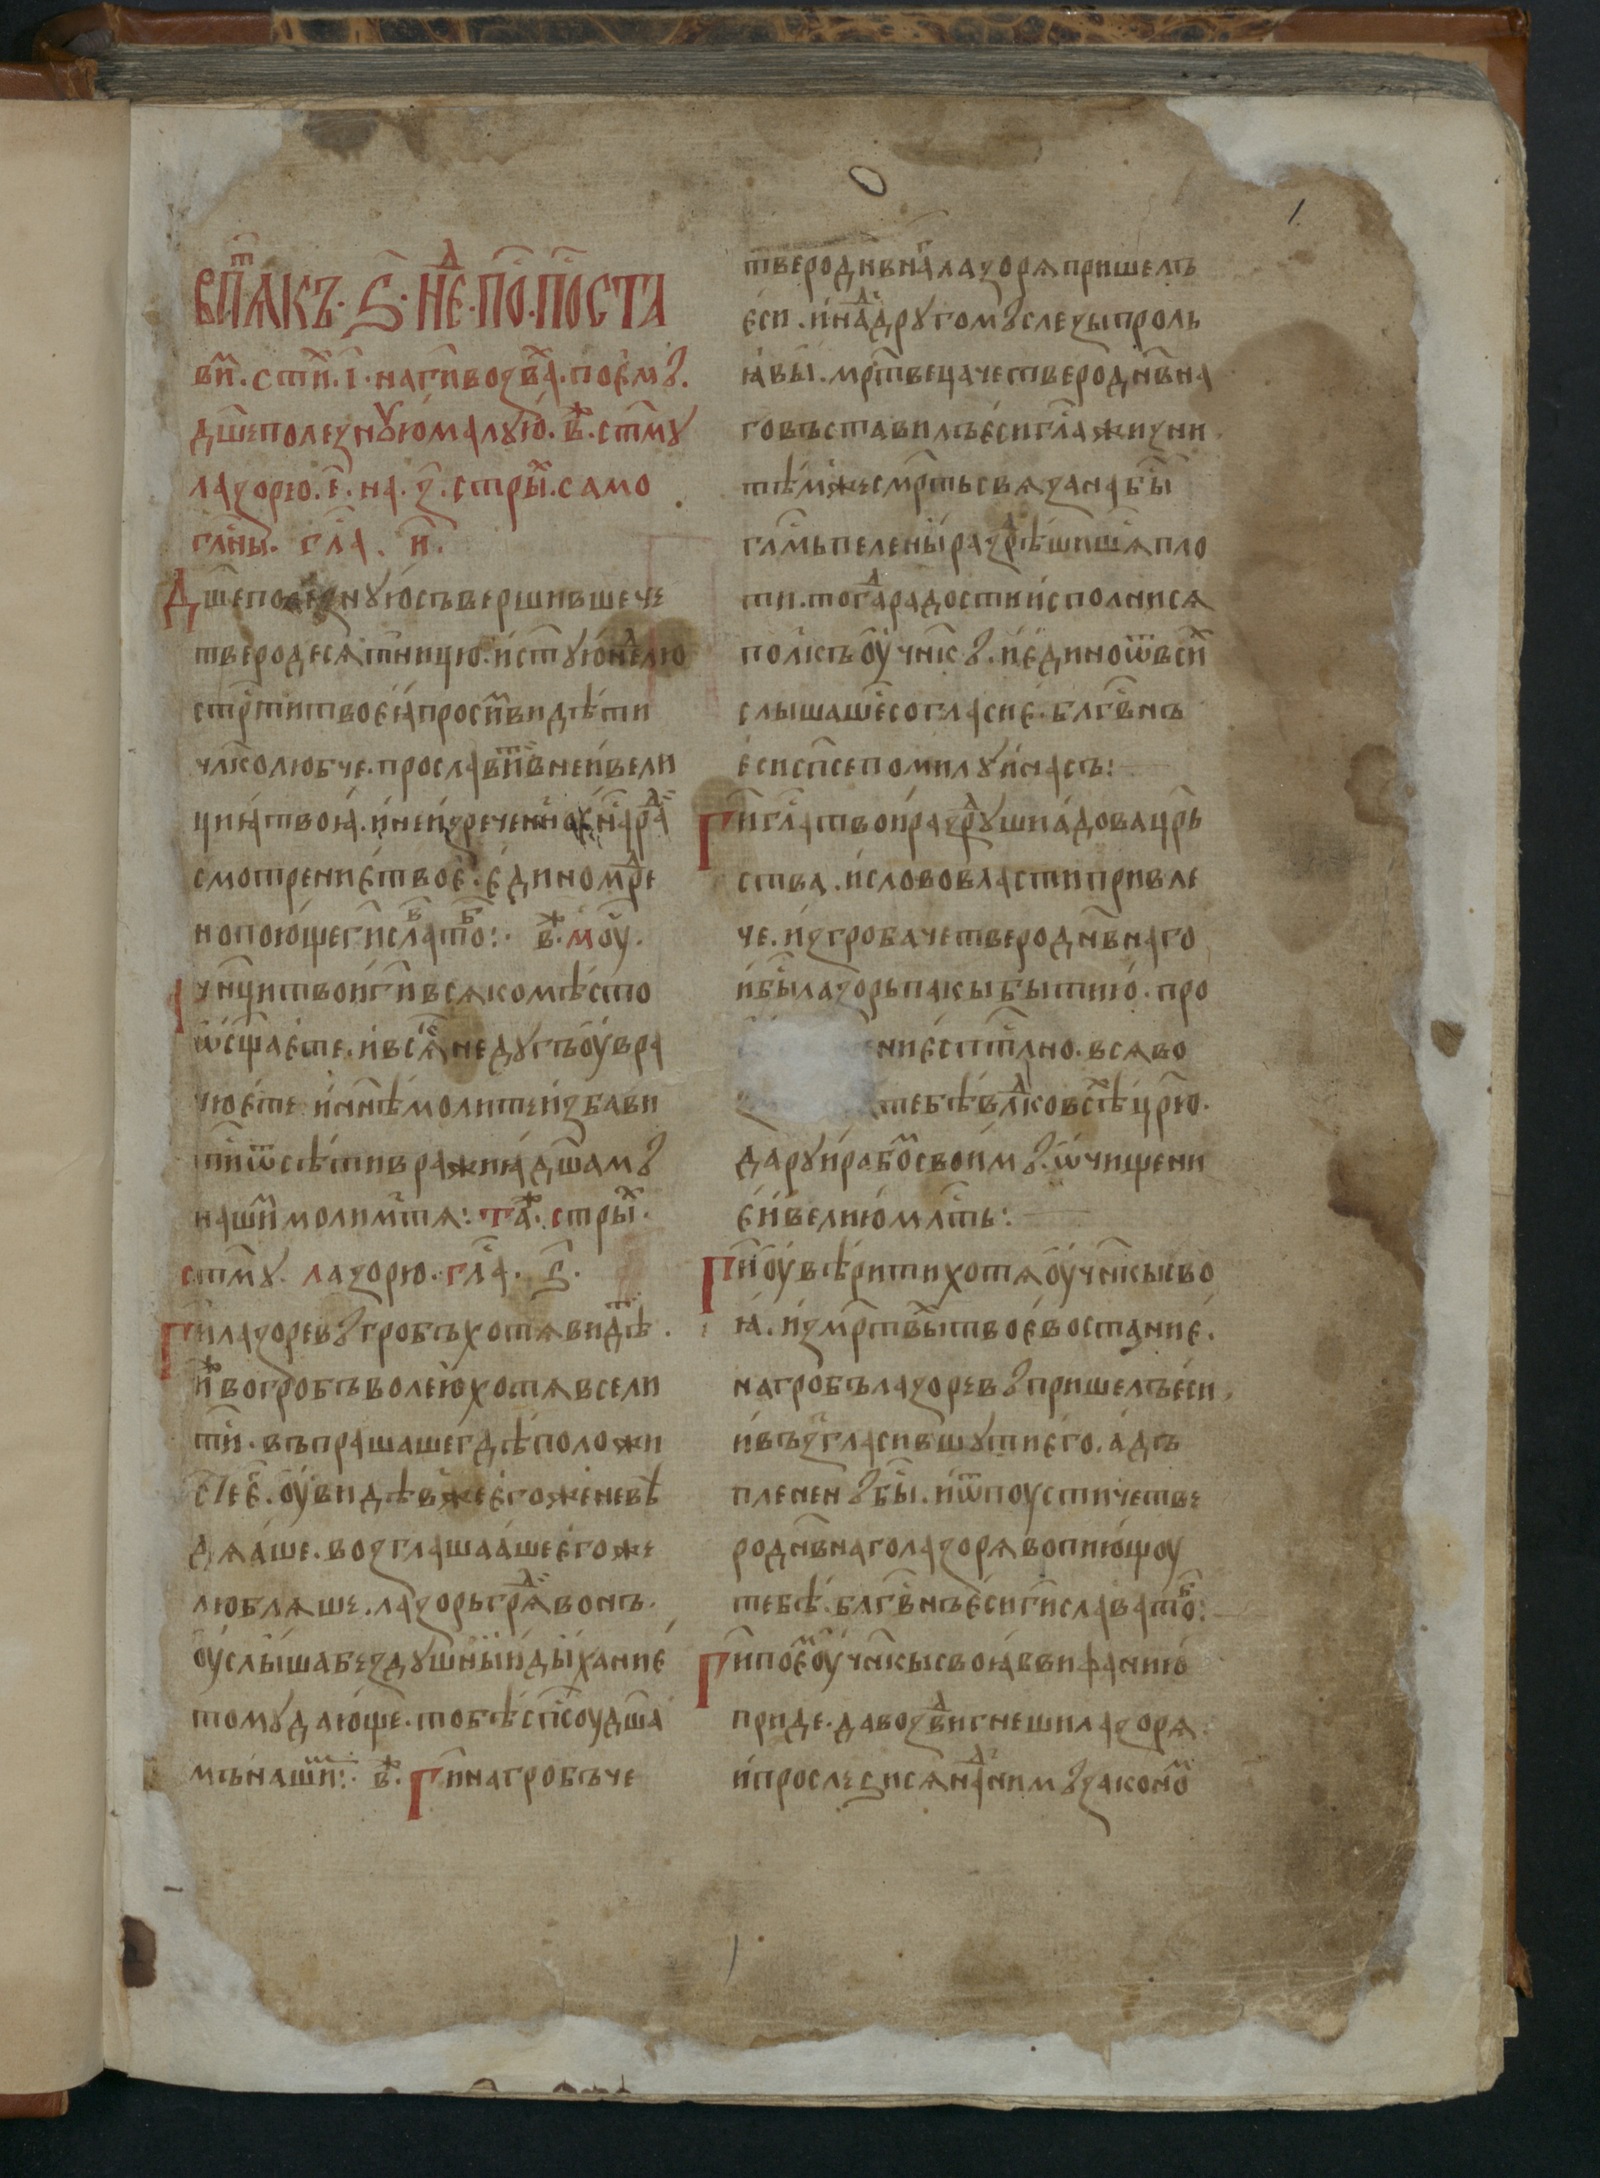 В пѧ҃т҇къ · ѕ҃ · нє҃д · по · поста
ви҃ⷨ · стиⷯ · і҃ · на ги҃ воз̾ваⷯ · поємꙋ ·
дш҃еполезнꙋю малую · вⷤ · ст҃му
лазорю · є҃ · на · з҃ · стрыⷯ · само
гла҃ны · гла҃ · и҃ ·
Дш҃еполезную съвершивше че
твероде́сѧтницю · и ст҃ую неⷣлю
стрⷭ҇ти твоеꙗ просиⷨ видѣти
чл҃колюбче · прославиⷮ в неи вели
чиꙗ твоꙗ · и неизреченноє наⷭ҇ раⷣ
смотрение твоє · єдиномрⷣе
но поюще ги҃ слаⷡ тоⷠ : вⷤ · моу҃ ·
Мунц҃и твои ги҃ всѧко мѣсто
ѡс҃щаєте · и всѧⷦ недугъ оувра
чюєте · и нн҃ѣ молите избави
ти ѿ сѣти вражиꙗ дш҃амꙋ
нашиⷨ молимтѧ : таⷤ · стрыⷯ ·
ст҃му · лазорю · гла҃ · ѕ҃ ·
Ги҃ лазоревꙋ гробъ хотѧ видѣⷮ ·
иⷤ во гробъ волею хотѧ всели
тиⷭ҇ · въпрашаше гдѣ положи
стеⷭ҇ єⷢ · оувидѣвже єгоже не вѣ
дѧаше · возглашааше єгоже
люблѧше · лазорь грѧⷣ вонъ ·
оуслыша бездушныи дыхание
тому дающе · тобѣ сп҃соу дш҃а
мъ нашиⷨ : вⷤ · Ги҃ на гробъ че
твероднⷡнаⷢ лазорѧ пришелъ
єси · и наⷣ другомꙋ слезы проль
ꙗвы · мрт҃веца четвероднⷡна
го въставилъ єси гла҃ жизни
тѣмже смрт҃ь свѧзана бы҃
глм҃ь пелены раздрѣшишѧ пло
ти · тогⷣа радости исполнисѧ
полкъ оучнⷦ҇ꙋ · и єдино ѿ всиⷯ
слышашесѧ согласиє · блгⷭ҇внъ
єси сп҃се помилуи насъ :
Ги҃ гла҃ твои раздруши адова црⷭ҇
ства · и слово власти привле
че · из гроба четвероднⷡнаго
и бы҃ лазорь пакы бытию · про
ниє сп҃тлно · всѧ во
тебѣ влⷣко всѣⷯ цр҃ю ·
даруи рабоⷨ своимꙋ · ѡчищени
є и велию млⷭ҇ть :
Ги҃ оувѣрити хотѧ оучнⷦ҇ы сво
ꙗ · из мрт҃выⷯ твоє востание ·
на гробъ лазоревꙋ пришелъ єси ·
и възгласившу ти єго · адъ
плененꙋ бы҃ · и ѿпоусти четве
роднⷡнаго лазорѧ вопиющоу
тебѣ · блгⷭ҇внъ єси ги҃ слава тоⷠ :
Ги҃ поємъ оучнⷦ҇ы своꙗ в вифанию
приде · да воздвигнеши лазорѧ ·
и прослезисѧ наⷣ нимꙋ закономⷨ